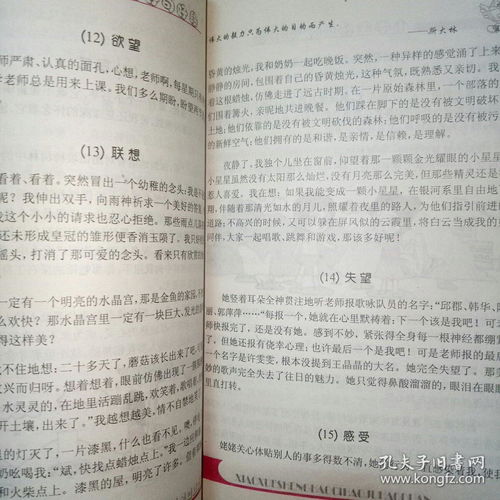 (12) 欲望
师严肃、认真的面孔，心想，老师啊，每星期只
老师总是用来上课。我们多么期盼，盼望
(13) 联想
看着、看着。突然冒出一个幼稚的念头：我是
呢？我伸出双手，向雨神祈求一个美好的
我这个小小的请求也忍心拒绝。那些雨点儿
还未形成皇冠的雏形便香消玉陨了。我只
摇头，打消了那可爱的念头。看来只有欣赏
一定有一个明亮的水晶宫，那是金鱼的家园，
么欢快？那水晶宫里一定有一块巨大、发光的
得这样美？
不住地想：二十多天了，蘑菇该长出来了吧，
兴而归呀。想着想着，眼前仿佛出现了一
水灵灵的，在地里活蹦乱跳，欢笑着，歌唱着
开土壤，出来了。“我越想越美，情不自禁地
的灯灭了，一片漆黑，什么也看不见，噢，
奶吆喝我：“斌，快找点蜡烛点上。”我一边应
和火柴点上。漆黑的屋，明亮了许多，
伟大的毅力只为伟大的目的而产生。
——斯大林
昏黄的烛光，我和奶奶一起吃晚饭。突然，一种异样的感觉涌了上来
的房间内，包围着自己的昏黄烛光，这种气氛，既熟悉又亲切。我
着这根蜡烛，仿佛走进了远古时代。在一片原始森林里，一个部落的
们围着篝火，亲昵地共进晚餐。他们踩在脚下的是没有被文明破坏
土地；他们依靠的是没有被文明砍伐的森林；他们呼吸的是没有被污
的新鲜空气；他们拥有的是和谐，是亲情，是信赖，是理解。
夜静了，我独个儿坐在窗前，仰望着那一颗颗金光耀眼的小星星
小星星虽然没有太阳那么灿烂，没有月亮那么完美，但那些精灵还是
惹人喜爱。我在想：如果我能变成一颗小星星，在银河系里自由地
期，伴随着那清光如水的月儿，照耀着夜里的路人，为他们指引前进
道路；不高兴的时候，又可以躲在屏风似的云霞里，将白云当成我的
同伴，大家一起唱歌、跳舞和游戏，那该多好呢！
(14) 失望
她竖着耳朵全神贯注地听老师报歌咏队员的名字：“邱郡、韩华、
丽、郭萍萍……”每报一个，她就在心里默祷着：下一个该是我吧！可是
师快报完了，还是没有她。感到不妙，紧张得全身每一根神经都要绷
了。但她还报有侥幸心理；也许最后一个是我吧！可是老师报的最
一个名字是许雯英，根本没提到王晶晶的大名。她完全失望了。那
妙的歌声完全失去了往日的魅力。她只觉得鼻酸溜溜的，眼泪在眼眶
里直打转。
(15) 感受
姥姥关心体贴别人的事多得数不清，她
孔夫子旧书网